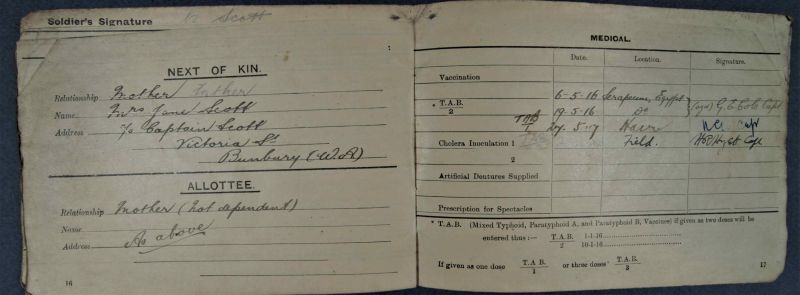 Soldier's Signature Scott
NEXT OF KIN.
Relationship Mother
Name Mrs Jane Scott
Address c/o Captain Scott
Victoria St
Bunbury (W.A)
ALLOTTEE.
Relationship Mother (not dependent)
Name
Address As above
16
MEDICAL.
Date. Location. Signature.
Vaccination
* T.A.B. 6-5-16 Serapeum, Egypt
2 19.5-16 Do
T.A.B
1 Havre Capt
Cholera Inoculation 1 Field. Capt
2
Artificial Dentures Supplied
Prescription for Spectacles
* T.A.B. (Mixed Typhoid, Paratyphoid A, and Paratyphoid B, Vaccines) if given as two doses will be
entered thus :— T.A.B. 1-1-16
2 10-1-16
If given as one dose T.A.B. or three doses T.A.B.
1 3
17